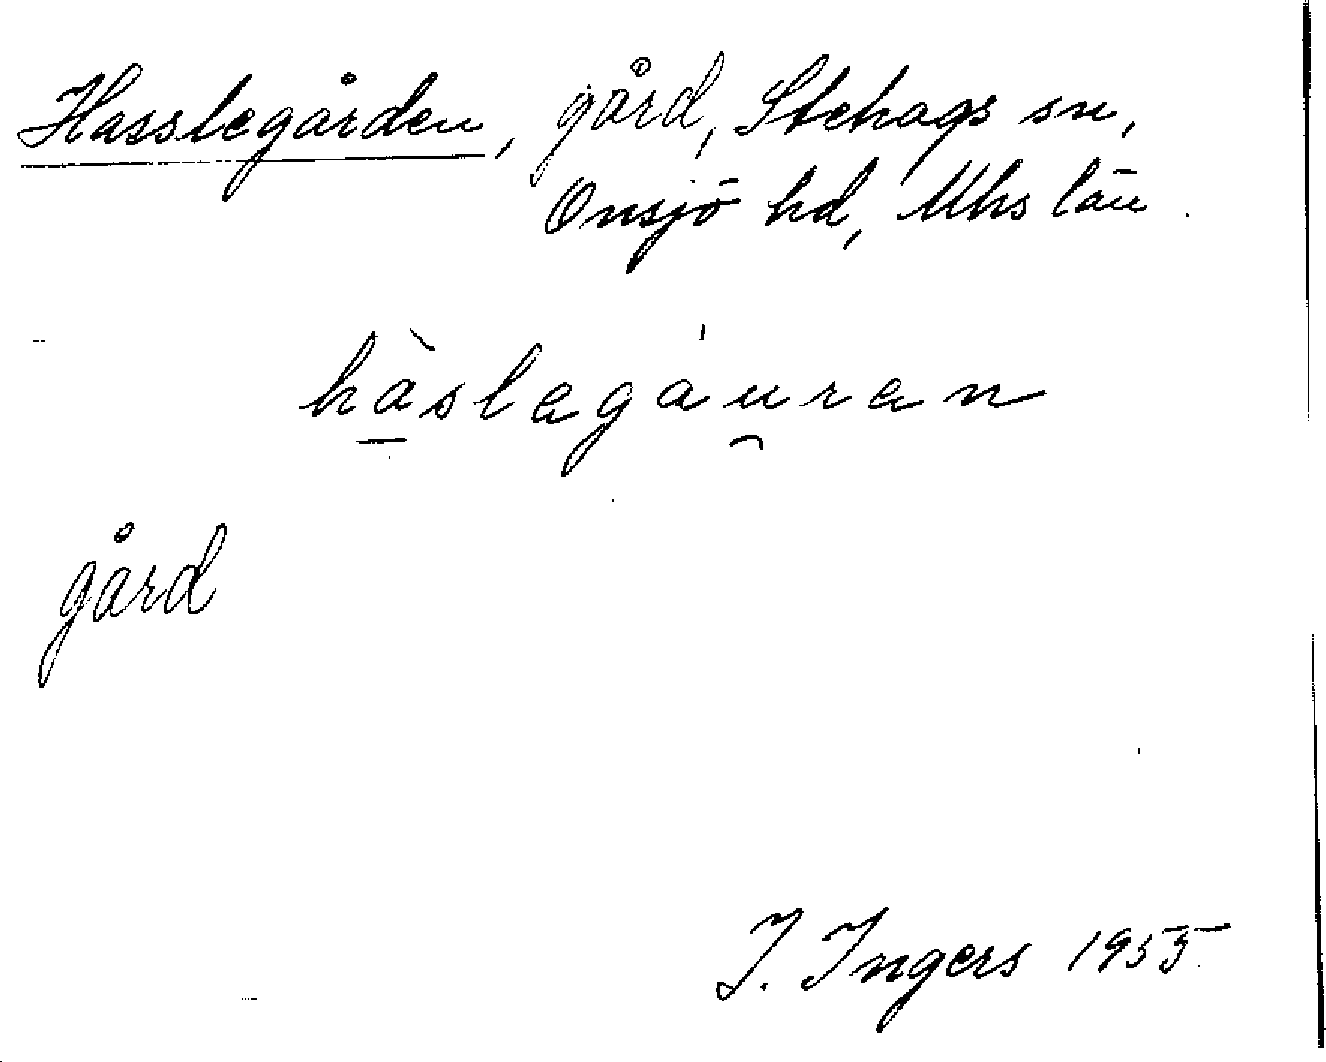 Hasslegården, gård, Stehags sn,
Onsjö hd, Mhs län.
hàslagáuran
gård
I. Ingers 1955.